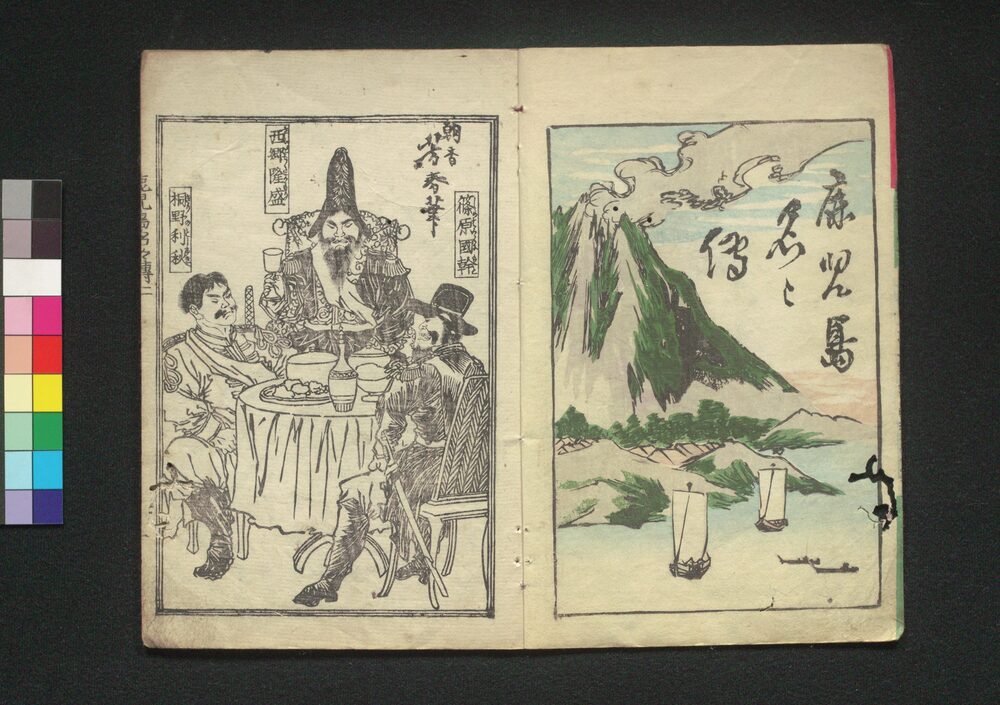 鹿児島
名々
傳
篠原國幹
朝香
芳春筆
西郷隆盛
桐野利秋
鹿児島名々傳